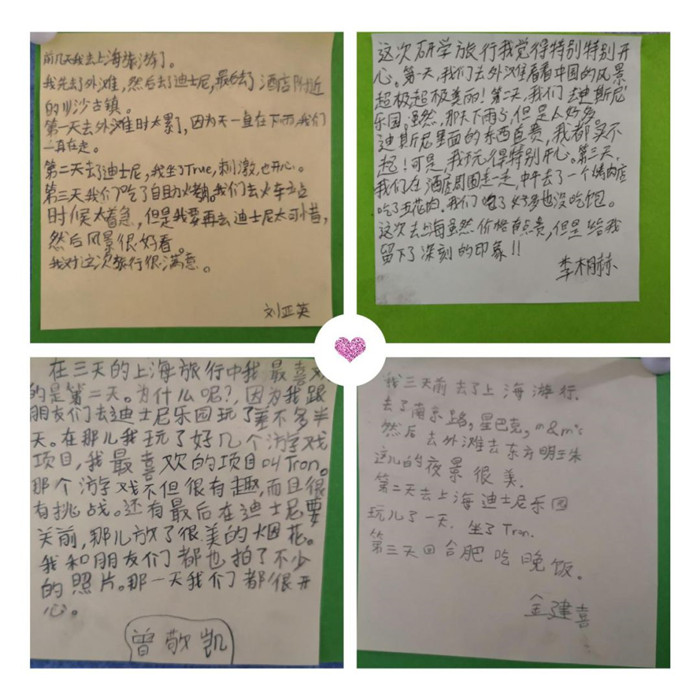 前几天我去上海旅游了。
我先去了外滩,然后去了迪士尼,最后去了酒店附近
的川沙古镇。
第一天去外滩时太累了,因为天一直在下雨,我们
一直在走。
第二天去了迪士尼,我坐了True,刺激,也开心。
第三天我们吃了自助火锅。我们去火车站
时候太着急,但是我要再去迪士尼太可惜,
然后风景很好看。
我对这次旅行很满意。
刘亚英
这次研学旅行我觉得特别特别开
心。第一天,我们去外滩看看中国的风景
超极超极美丽!第二天,我们去迪斯尼
乐园,虽然,那天下雨了,但是人好多
迪斯尼里面的东西自贵,我都没不
起!可是,我玩得特别开心。第三天,
我们在酒店周围走一走,中午去了一个烤肉店
吃了五花肉。我们吃了好多也没吃饱。
这次去上海虽然价格有点贵,但是给我
留下了深刻的印象!!
李相赫
在三天的上海旅行中我最喜欢
的是第二天。为什么呢?,因为我跟
朋友们去迪士尼乐园玩了差不多半
天。在那儿我玩了好几个游戏
项目,我最喜欢的项目叫Tron。
那个游戏不但很有趣,而且很
有挑战。还有最后在迪士尼要
关前,那儿放了很美的烟花。
我和朋友们都也拍了不少
的照片。那一天我们都很开
心。
曾敬凯
我三天前去了上海游行.
去了南京路,星巴克,m&m's
然后去外滩去东方明珠
这儿的夜景很美.
第二天去上海迪士尼乐园
玩儿了一天.坐了Tron.
第三天回合肥吃晚饭.
金建喜